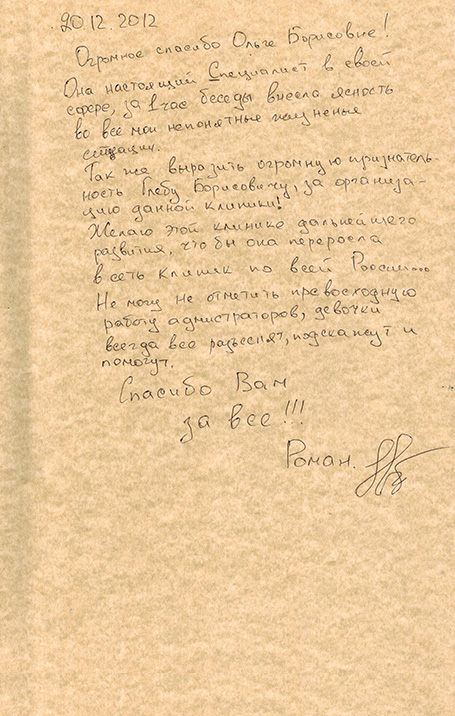 20.12.2012
Огромное спасибо Ольге Борисовне!
Она настоящий Специалист в своей
сфере, за 1 час беседы внесла ясность
во все мои непонятные жизненые
ситуации.
Так же выразить огромную признатель-
ность Глебу Борисовичу, за организа-
цию данной клиники!
Желаю этой клинике дальнейшего
развития, что бы она переросла
в сеть клиник по всей России...
Не могу не отметить превосходную
работу адмистраторов, девочки
всегда все разьеснят, подскажут и
помогут.
Спасибо Вам
за все!!!
Роман.